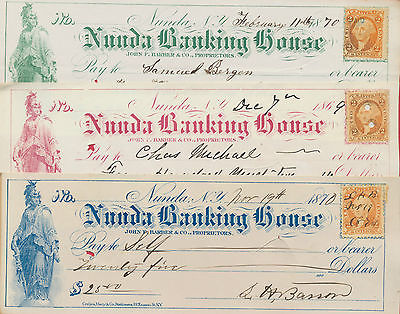 No. Nunda, N.Y. February 11th 1870
Nunda Banking House
JOHN F. BARBER & CO., PROPRIETORS.
Pay to Samuel Bergen or bearer
No. Nunda, N.Y. Dec 7th 1869
Nunda Banking House
JOHN F. BARBER & CO., PROPRIETORS.
Pay to Chas Michael or bearer
Hundred
No. Nunda, N.Y. Nov 19th 1870
Nunda Banking House
JOHN F. BARBER & CO., PROPRIETORS.
Pay to Self or bearer
Twenty five Dollars
$ 25.00